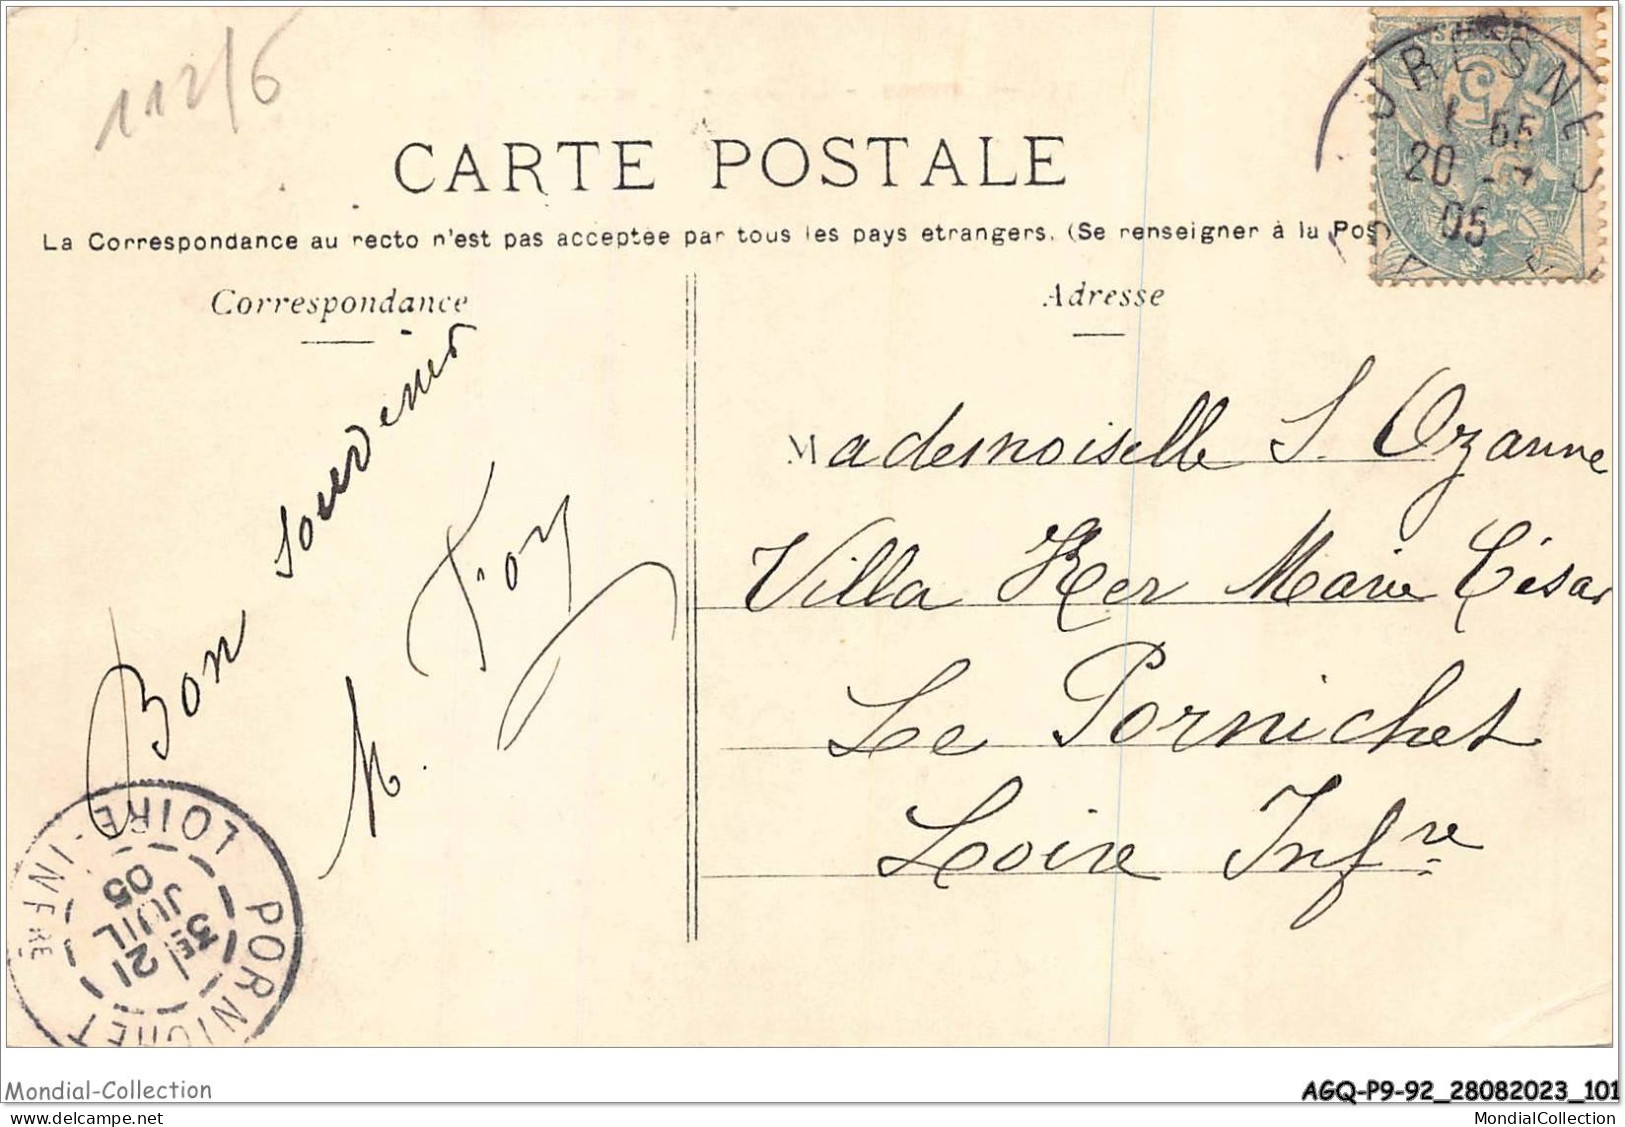 112/6
CARTE POSTALE
La Correspondance au recto n'est pas acceptée par tous les pays etrangers. (Se renseigner à la Pos
Correspondance
Adresse
URESNES
1 55
20 -7
05
Bon souvenir
Mademoiselle S. Ozanne
Villa Ker Marie César
Le Pornichet
Loire Infre
PORNICHET
LOIRE-INFRE
3E
21
JUIL
05
Mondial-Collection
AGQ-P9-92_28082023_101
MondialCollection